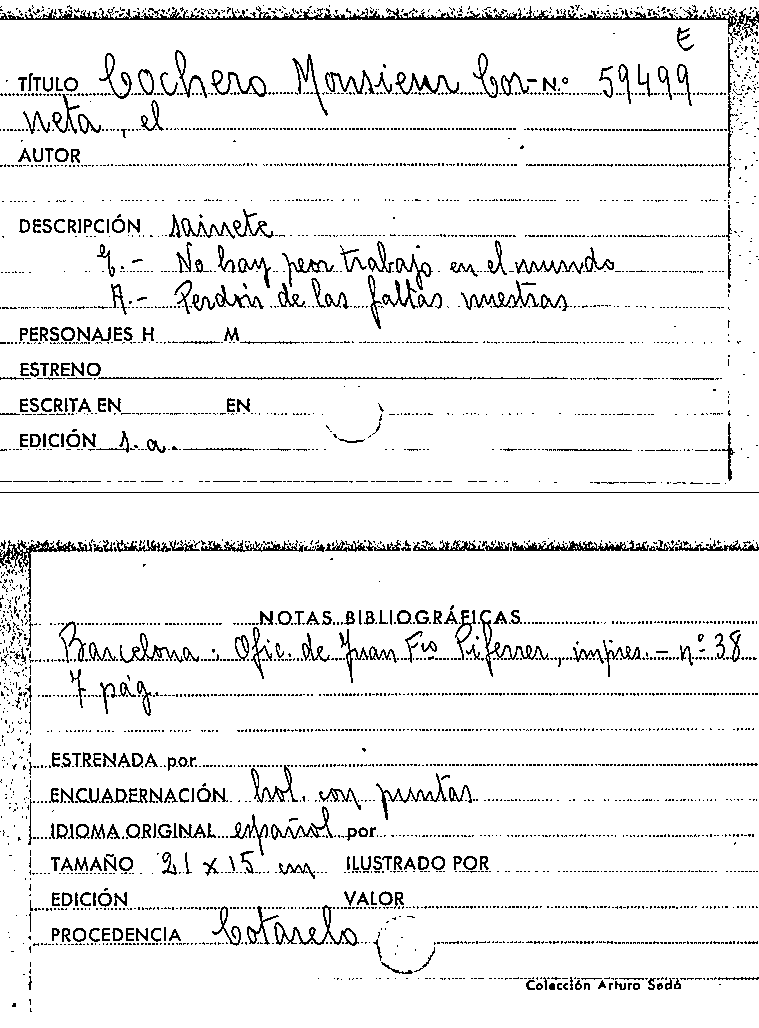 E
TÍTULO Cochero Monsieur Cor- N.º 59499
neta, el
AUTOR
DESCRIPCIÓN sainete
E.- No hay peor trabajo en el mundo
A.- Perdón de las faltas nuestras
PERSONAJES H M
ESTRENO
ESCRITA EN EN
EDICIÓN s.a.
NOTAS BIBLIOGRÁFICAS
Barcelona: Ofic. de Juan Fco Piferrer, impres. - nº 38
7 pág.
ESTRENADA por
ENCUADERNACIÓN hol. con puntas
IDIOMA ORIGINAL español por
TAMAÑO 21 x 15 cm ILUSTRADO POR
EDICIÓN VALOR
PROCEDENCIA Cotarelo
Colección Arturo Sedó